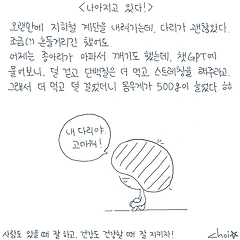 <나아지고 있다!>
오랜만에 지하철 계단을 내려가는데, 다리가 괜찮았다.
조금(?) 흔들거리긴 했어도.
어제는 종아리가 아파서 깨기도 했는데, 챗GPT에
물어보니, 덜 걷고 단백질은 더 먹고, 스트레칭을 해주라고.
그래서 더 먹고 덜 걸었더니 몸무게가 500g이 늘었다 ㅎㅎ
내 다리야
고마워!
사람도 있을 때 잘 하고, 건강도 건강할 때 잘 지키자!
choi